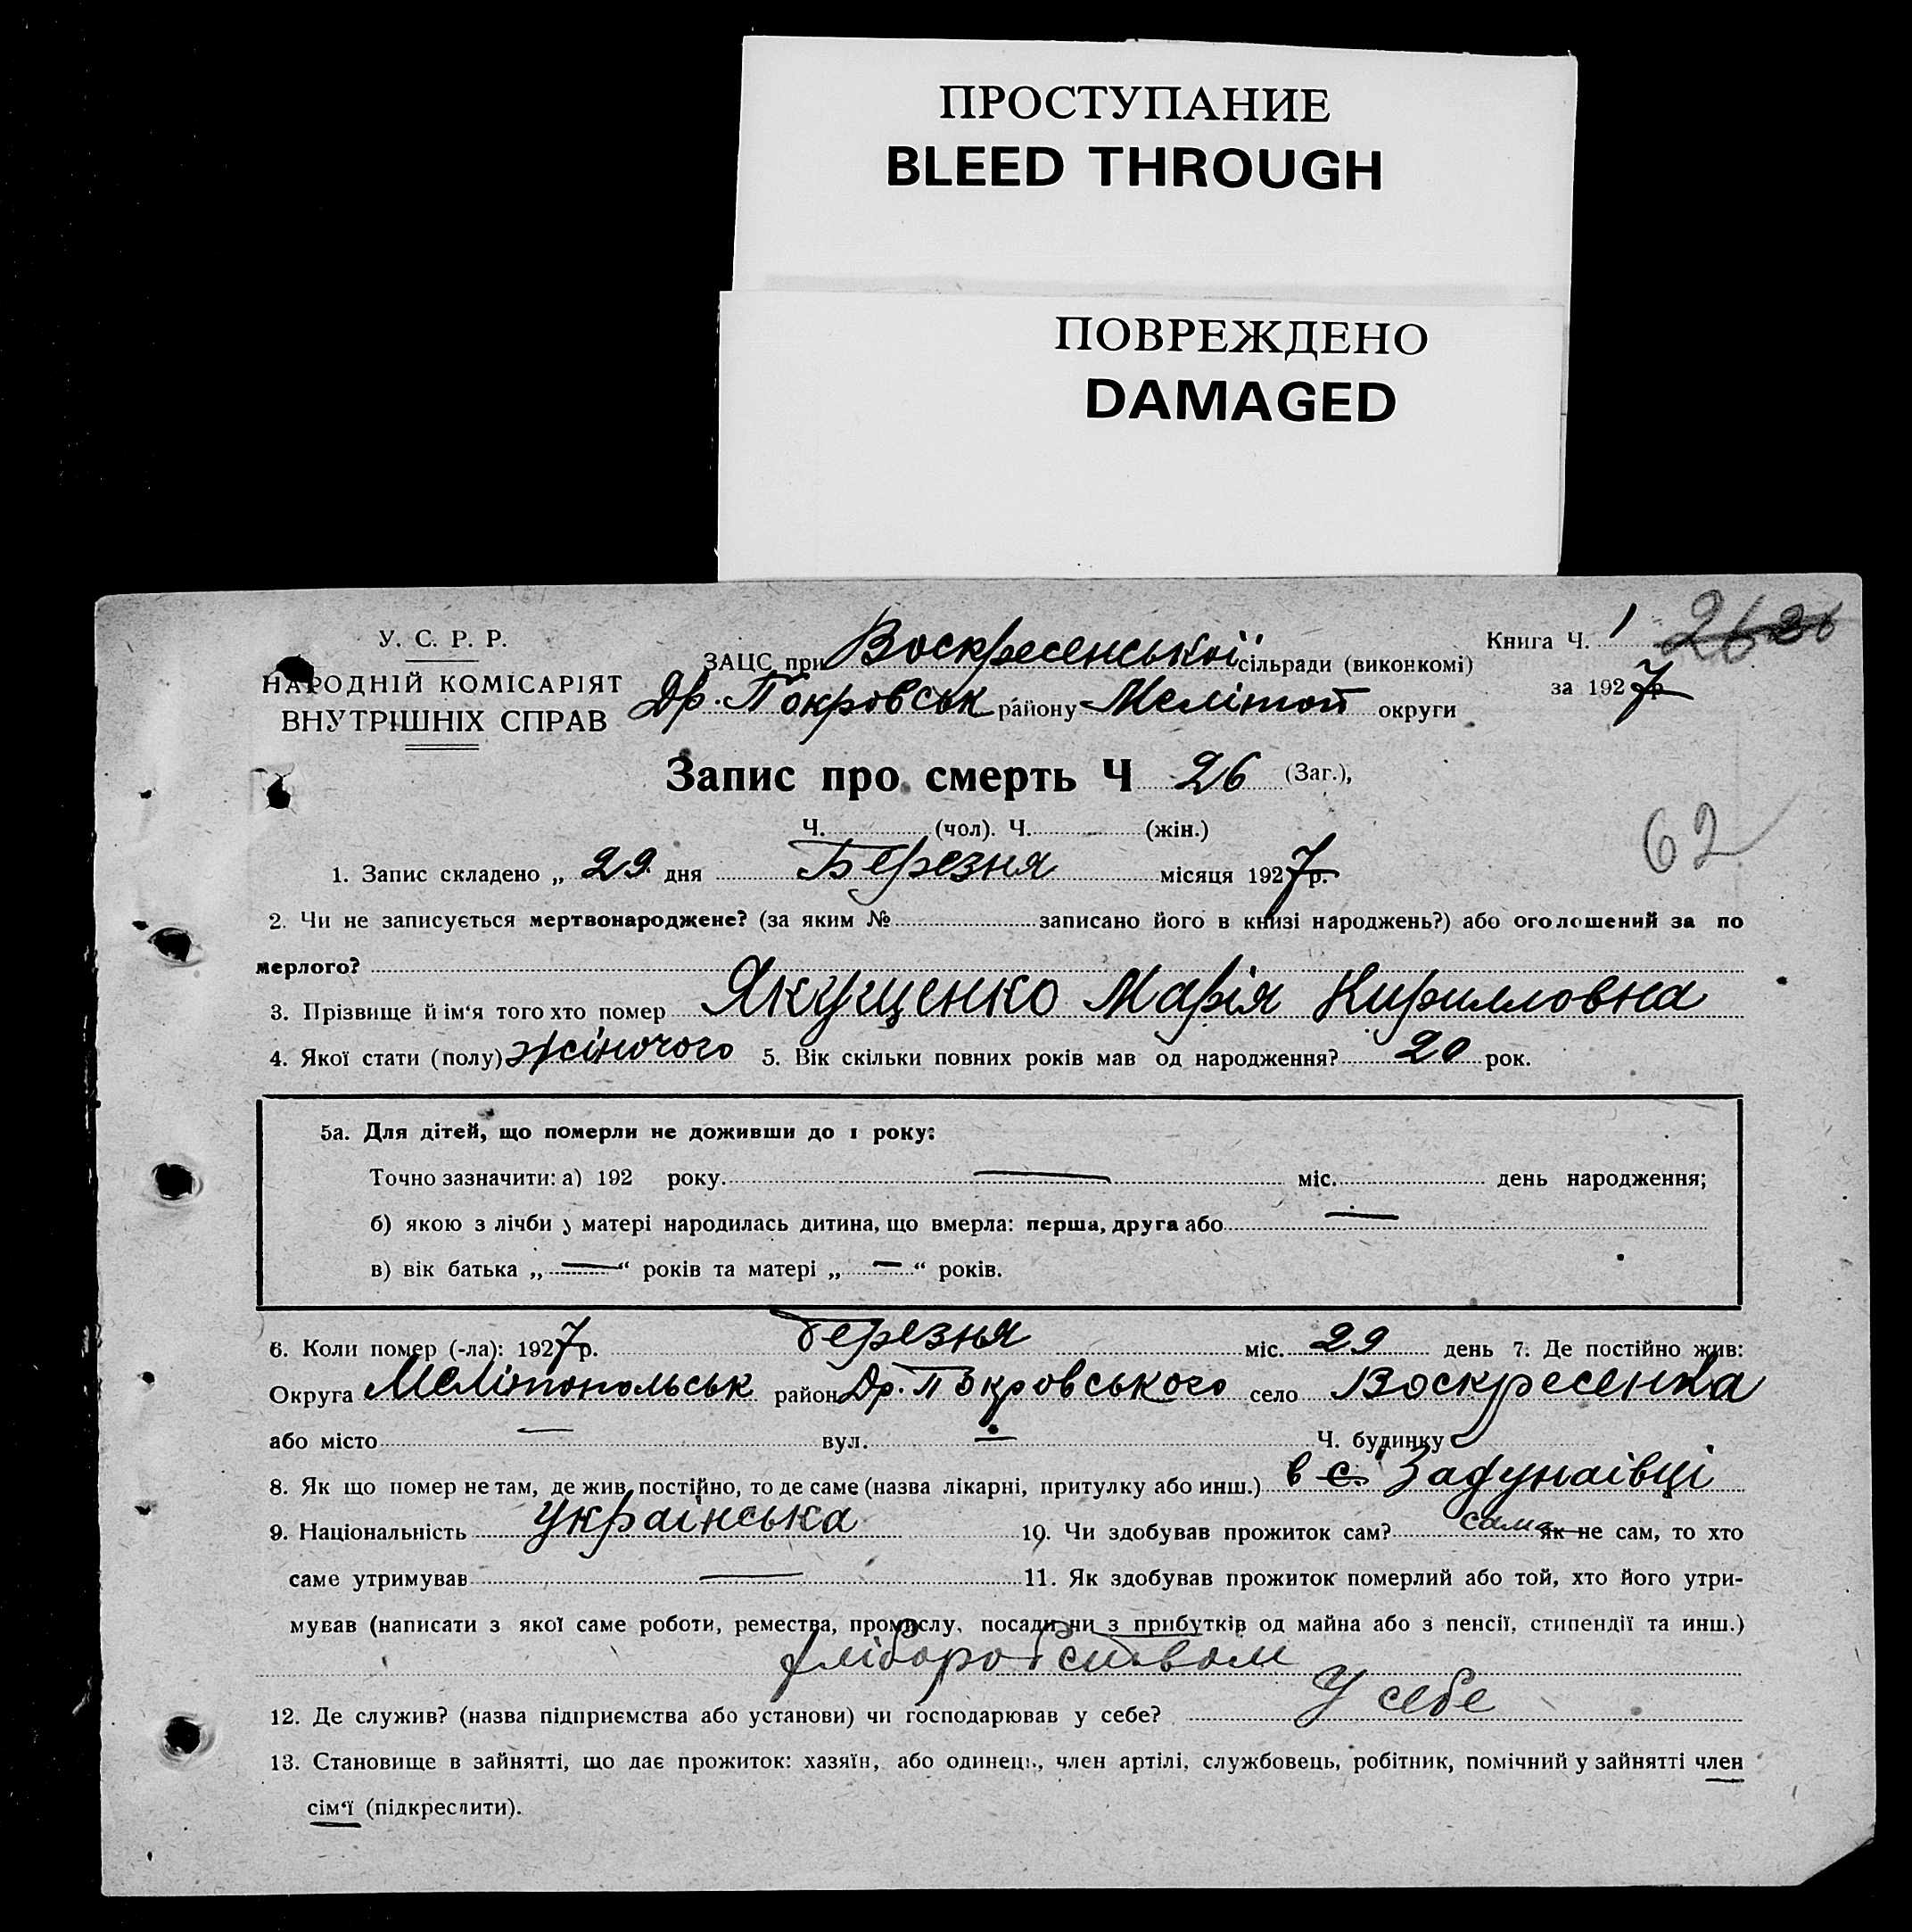 ПРОСТУПАНИЕ
BLEED THROUGH
ПОВРЕЖДЕНО
DAMAGED
У. С. Р. Р.
НАРОДНІЙ КОМІСАРІЯТ
ВНУТРІШНІХ СПРАВ
Книга Ч. 1 26
за 1927 р.
ЗАЦС при Воскресенської сільради (виконкомі)
Др. Покровськ району Мелітоп округи
Запис про смерть Ч 26 (Заг.),
Ч. (чол). Ч. (жін.)
62
1. Запис складено „ 29 дня Березня місяця 1927 р.
2. Чи не записується мертвонароджене? (за яким № записано його в книзі народжень?) або оголошений за по
мерлого?
3. Прізвище й ім'я того хто помер Якущенко Марія Кирилловна
4. Якої стати (полу) жіночого 5. Вік скільки повних років мав од народження? 20 рок.
5а. Для дітей, що померли не доживши до 1 року:
Точно зазначити: а) 192 року — міс. день народження;
б) якою з лічби у матері народилась дитина, що вмерла: перша, друга або —
в) вік батька „ — “ років та матері „ — “ років.
6. Коли помер (-ла): 1927 р. Березня міс. 29 день 7. Де постійно жив:
Округа Мелітопольськ район Др. Покровського село Воскресенка
або місто — вул. — Ч. будинку
8. Як що помер не там, де жив постійно, то де саме (назва лікарні, притулку або инш.) в с. Задунаівці
9. Національність українська 10. Чи здобував прожиток сам? сама як не сам, то хто
саме утримував — 11. Як здобував прожиток померлий або той, хто його утри-
мував (написати з якої саме роботи, ремества, промислу, посади чи з прибутків од майна або з пенсії, стипендії та инш.)
хліборобством
12. Де служив? (назва підприємства або установи) чи господарював у себе? У себе
13. Становище в зайнятті, що дає прожиток: хазяїн, або одинець, член артілі, службовець, робітник, помічний у зайнятті член
сім'ї (підкреслити).